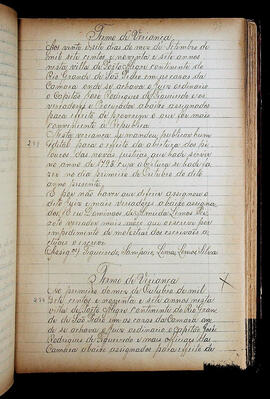 Termo de Vereança
Aos vinte e sete dias do mez de Setembro de
mil sete centos e noventa e sete annos
nesta villa de Porto Alegre continente do
Rio Grande de São Pedro em as casas da
Camara onde se achava o Juiz ordinario
o Capitão José Rodrigues de Figueiredo e os
vereadores e Procurador abaixo assignados
para effeito de proverem o que for mais
conveniente a Republica
Nesta vereança se mandou publicar hum
Edital para o effeito da abertura dos pe-
louros das novas justiças que hade servir
no anno de 1798 cuja abertura se hade fa-
zer no dia primeiro de Outubro do dito
anno presente
E por não haver que deferir assignou o
dito Juiz e mais vereadores abaixo assigna-
dos, E eu Domingos de Almeida Lemos Pei-
xoto vereador mais moço que escrevo por
impedimento de molestia do escrivão a
Figueiredo, Sampaio, Lima, Lemos, Silva
Termo de Vereança
274
Ao primeiro do mez de Outubro de mil
sete centos e noventa e sete annos nesta
villa de Porto Alegre continente do Rio Gran-
de de São Pedro em as casas da Camara on-
de se achava o Juiz ordinario o Capitão José
Rodrigues de Figueiredo e mais officiaes da
Camara abaixo assignados para effeito de